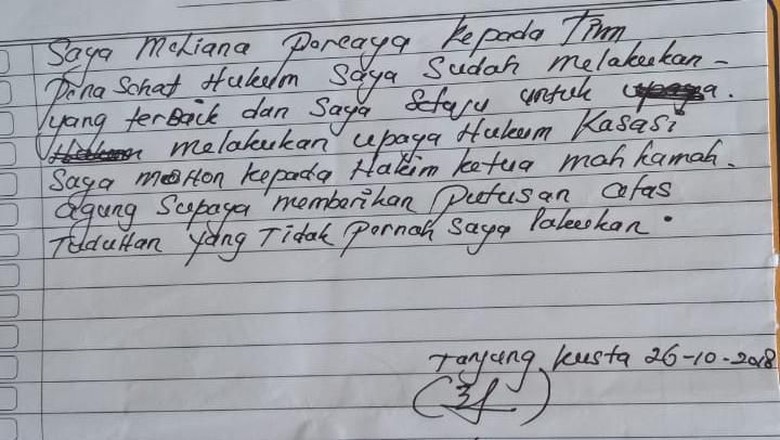 Saya Meliana Porcaya kepada Tim
Pena Sehat Hukum Saya Sudah melakukan -
yang terBaik dan Saya Setuju untuk
melakukan upaya Hukum Kasasi
Saya moHon kepada Hakim ketua mahkamah.
agung Supaya memberikan putusan atas
TuduHan yang Tidak Pernah Saya lakukan.
Tanjung kusta 26-10-2018